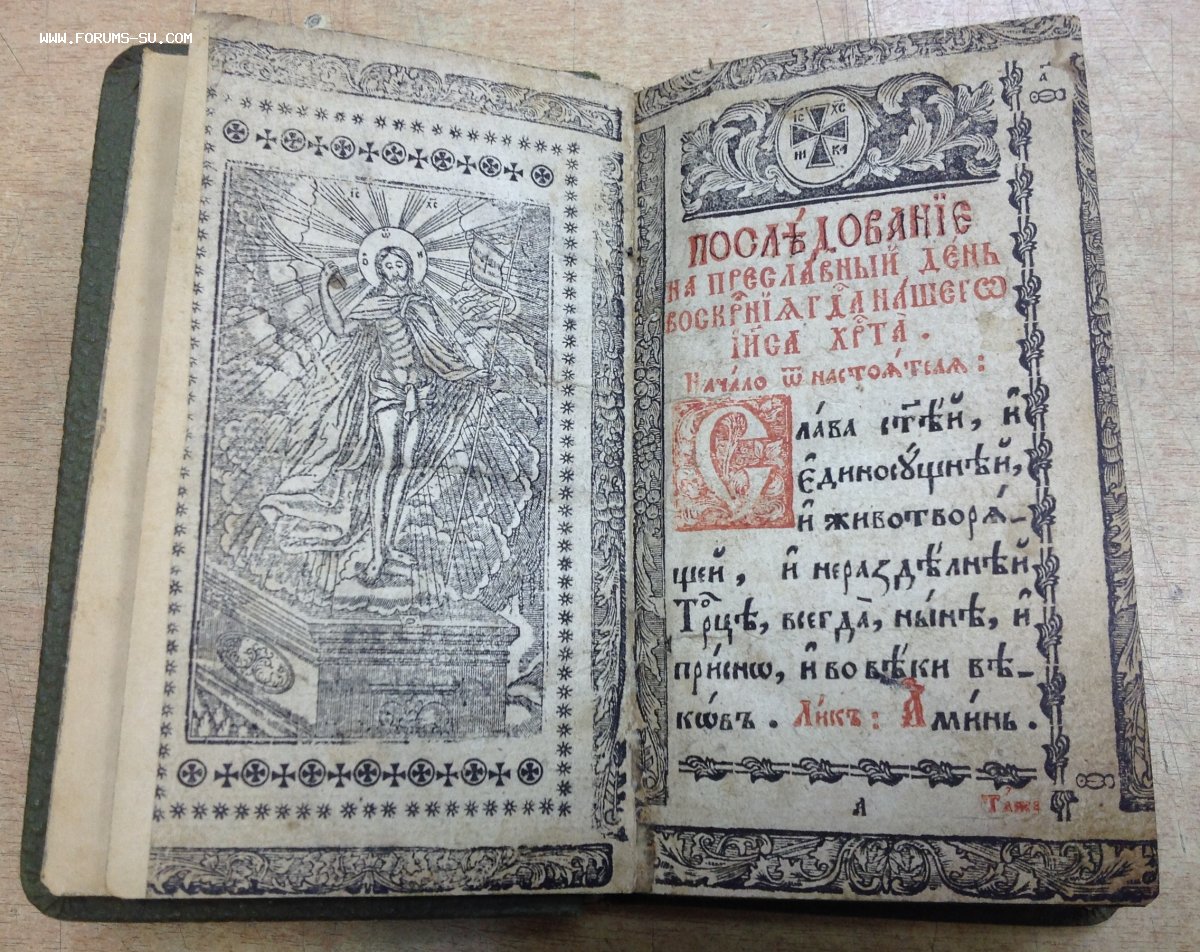 WWW.FORUMS-SU.COM
ІС ХС
Ѡ
О Н
ІС ХС
НИ КА
а҃
ПОСЛѢ́ДОВАНЇЕ
НА ПРЕСЛА́ВНЫЙ ДЕ́НЬ
ВОСКР҃НЇѦ ГДⷭ҇А НА́ШЕГѠ
ІИ҃СА ХРⷭ҇ТА̀ .
Нача́ло ѿ настоѧ́телѧ :
Сла́ва ст҃ѣ́й, и҆
є҆диносꙋ́щнѣй,
и҆ животворѧ́_
щей, и҆ нераздѣ́лнѣй
Трⷪ҇цѣ, всегда̀, ны́нѣ, и҆
при́снѡ, и҆ во вѣ́ки вѣ_
кѡ́въ . Ли́къ : А҆ми́нь .
А
Та́же